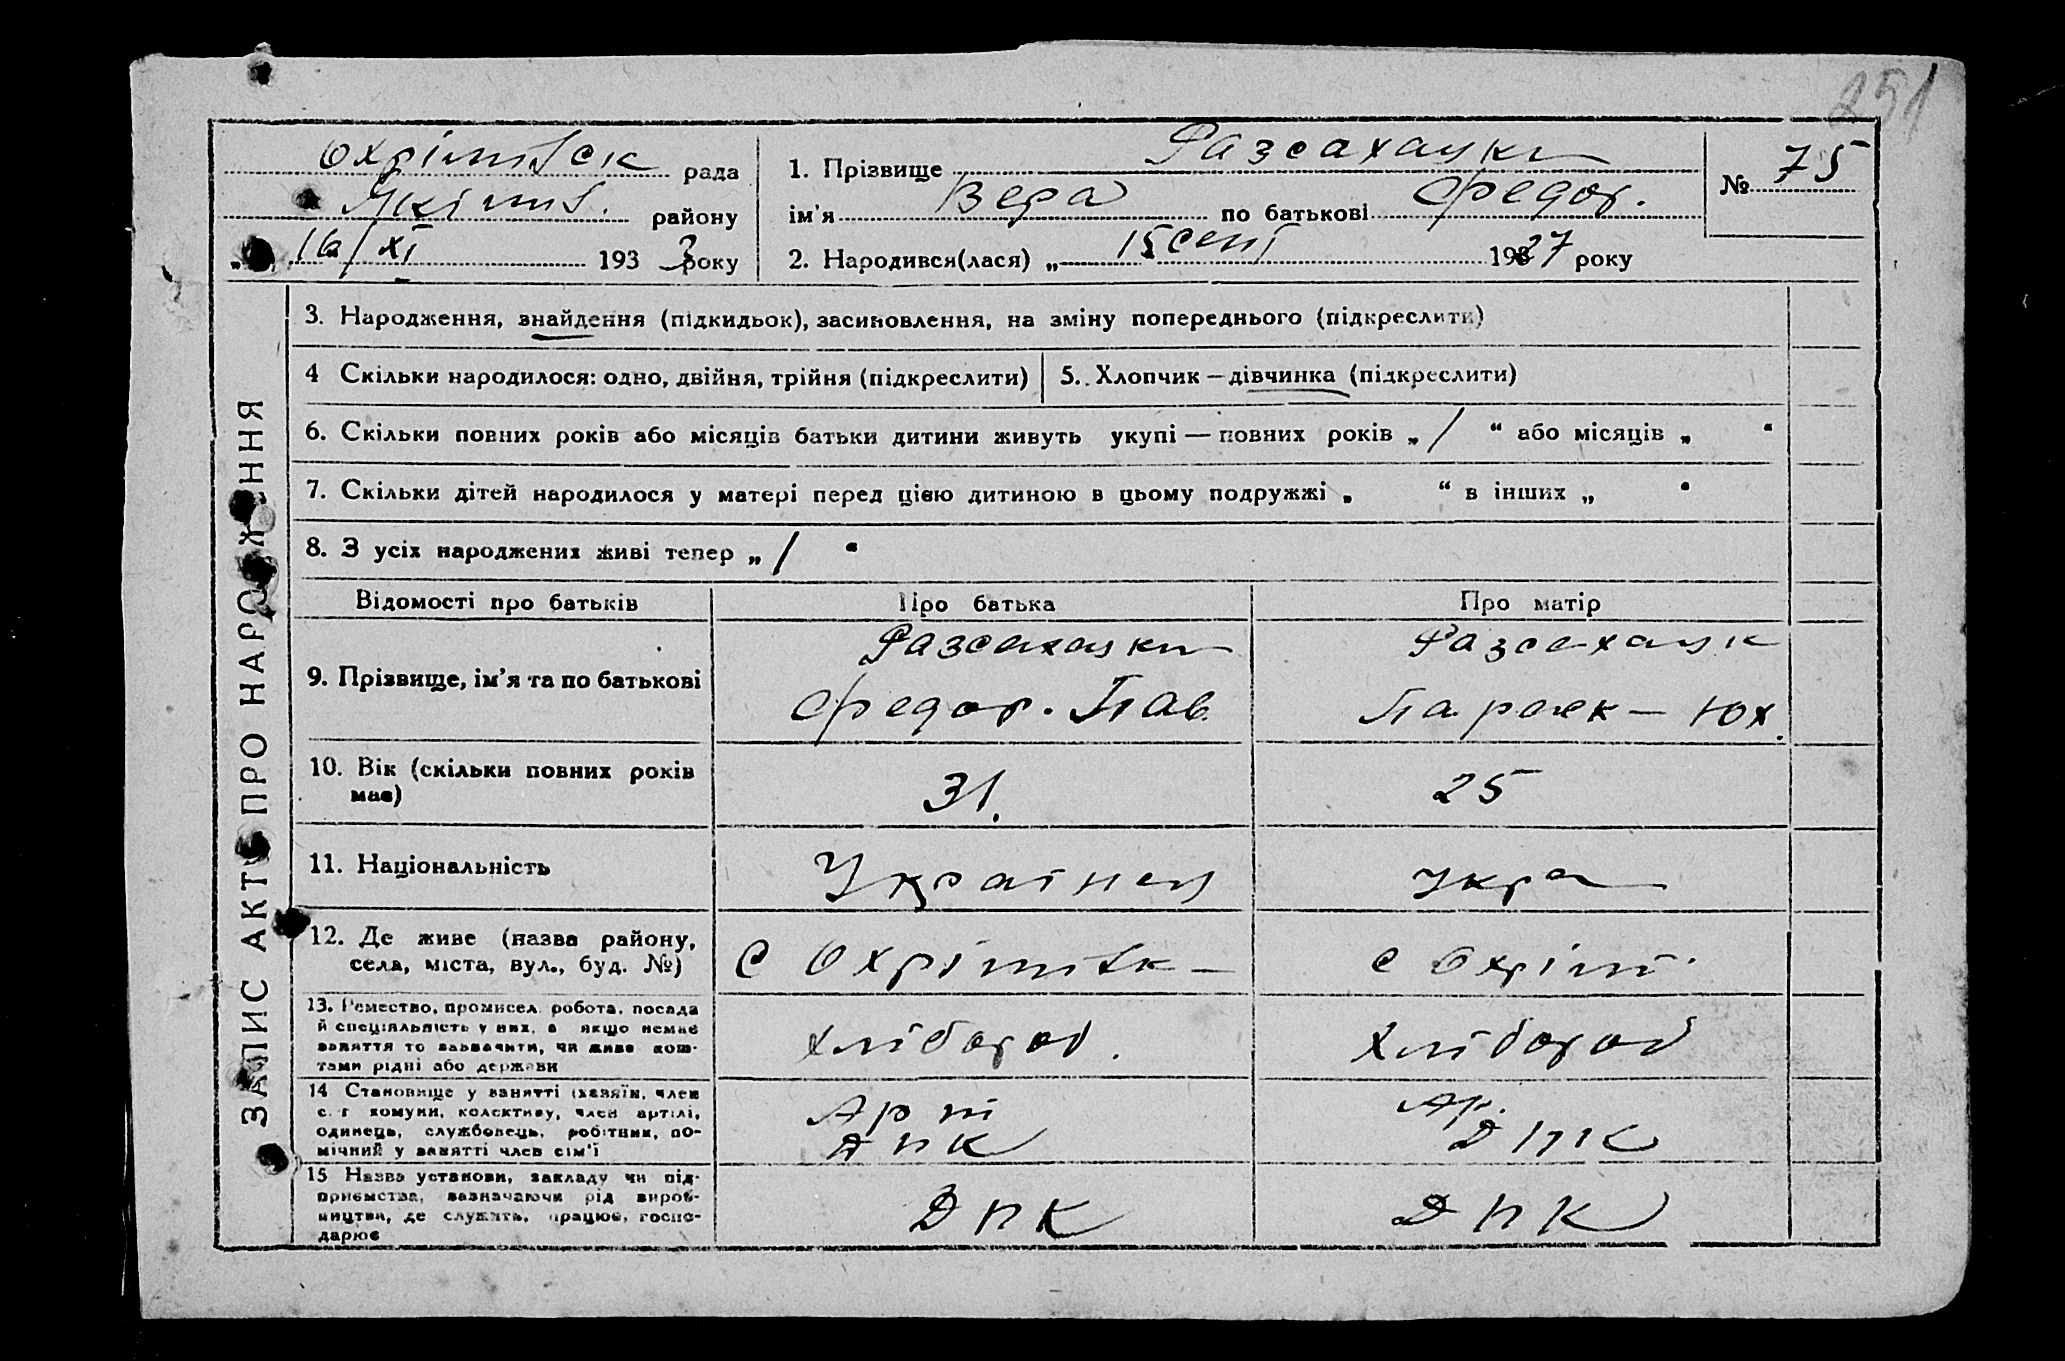 251
Охрімівск рада
Якімів. району
„ 16/XI 193 3 року
1. Прізвище Разсахацки
ім'я Вера по батькові Федор.
2. Народився(лася) „ 15 сент 1927 року
№ 75
ЗАПИС АКТУ ПРО НАРОДЖЕННЯ
3. Народження, знайдення (підкидьок), засиновлення, на зміну попереднього (підкреслити)
4 Скільки народилося: одно, двійня, трійня (підкреслити)
5. Хлопчик — дівчинка (підкреслити)
6. Скільки повних років або місяців батьки дитини живуть укупі — повних років „ / “ або місяців „ “
7. Скільки дітей народилося у матері перед цією дитиною в цьому подружжі „ “ в інших „ “
8. З усіх народжених живі тепер „ / “
Відомості про батьків Про батька Про матір
9. Прізвище, ім'я та по батькові
Разсахацки
Федор. Пав.
Разсахацк
Параск — Юх.
10. Вік (скільки повних років
має)
31. 25
11. Національність Українец Укра
12. Де живе (назва району,
села, міста, вул., буд. №)
С Охрімівк — с Охрім.
13. Ремество, промисел, робота, посада
й спеціяльність у них, а якщо немає
заняття то зазначити, чи живе кош-
тами рідні або держави
хлібороб. хлібороб
14 Становище у занятті (хазяїн, член
с.-г комуни, колективу, член артілі,
одинець, службовець, робітник, по-
мічний у занятті член сім'ї
Арт
ДПК
Ар.
ДПК
15 Назва установи, закладу чи під-
приємства, зазначаючи рід вироб-
ництва, де служить, працює, госпо-
дарює
ДПК ДПК